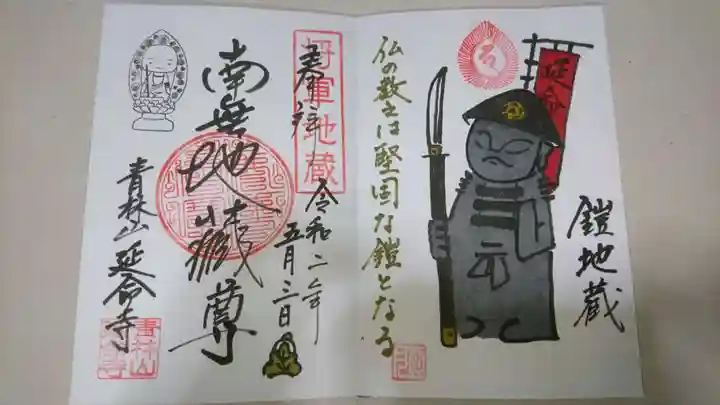 延命
鎧地蔵
仏の教えは堅固な鎧となる
将軍地蔵
奉拝
令和二年
五月三日
南無地蔵尊
青林山 延命寺